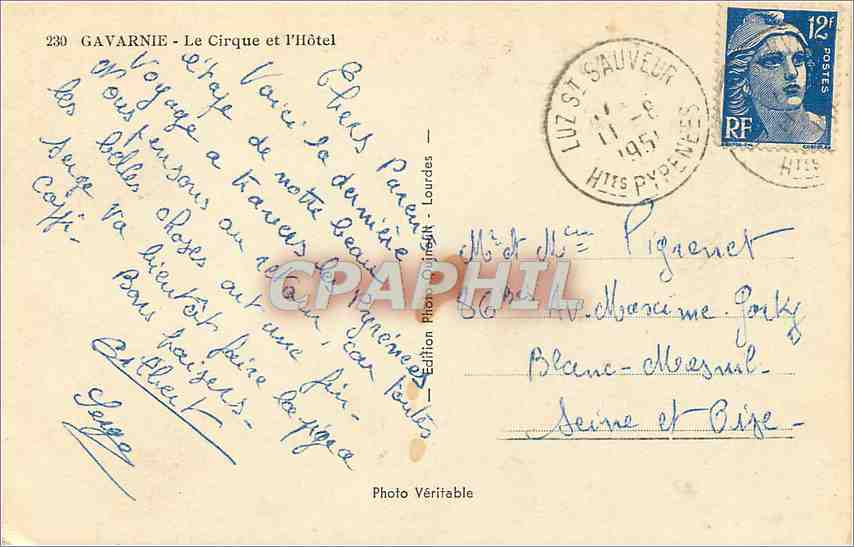 230 GAVARNIE - Le Cirque et l'Hôtel
Chers Parents
Voici la dernière
étape de notre beau
voyage a travers les Pyrénées
Nous pensons au retour, car toutes
les belles choses ont une fin-
Serge va bientôt faire la
Coffi-
Bons baisers-
Gilbert
Serge
Edition Photo - Lourdes
LUZ ST SAUVEUR
11 -8
1951
HTES PYRENEES
12F
POSTES
RF
HTES
Mr et Mme Pigrenet
86 Bis AV. Maxime-Gorky
Blanc-Mesnil-
Seine et Oise-
Photo Véritable
CPAPHIL